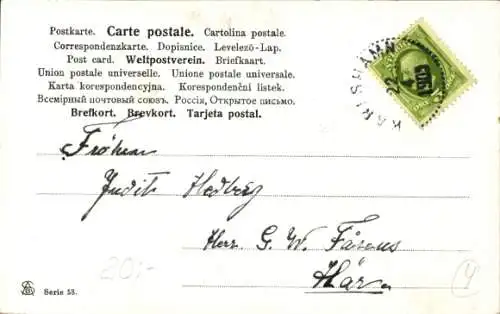 Postkarte. Carte postale. Cartolina postale.
Correspondenzkarte. Dopisnice. Levelező-Lap.
Post card. Weltpostverein. Briefkaart.
Union postale universelle. Unione postale universale.
Karta korespondencyjna. Korespondenční listek.
Всемірный почтовый союзъ. Россія, Открытое письмо.
Brefkort. Brevkort. Tarjeta postal.
KARLSHAMN
22
1905
Fröken
Judit Hedberg
Herr G. W.
Här
20:-
Serie 53.